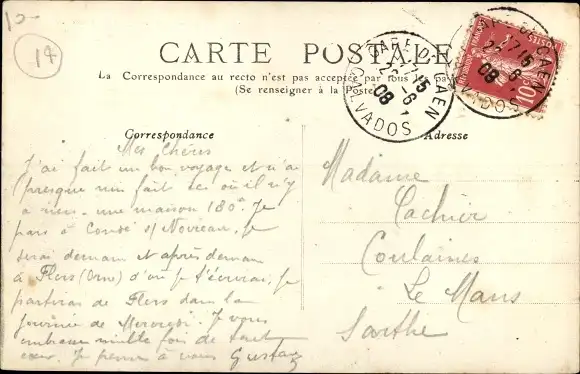 10-
14
CARTE POSTALE
La Correspondance au recto n'est pas acceptée par tous les pa
(Se renseigner à la Poste)
GARE DE CAEN
22-6
08
CALVADOS
10
Correspondance
Adresse
Mes Chéries
J'ai fait un bon voyage et n'ai
presque rien fait ici où il n'y
a rien. une maison 180. Je
pars à Condé s/ Noireau, je
serai demain et après demain
à Flers (Orne) d'où je t'écrirai. Je
partirai de Flers dans la
journée de Mercredi. Je vous
embrasse mille fois de tout
cœur. Je pense à vous Gustave
Madame
Cachier
Coulaines
Le Mans
Sarthe